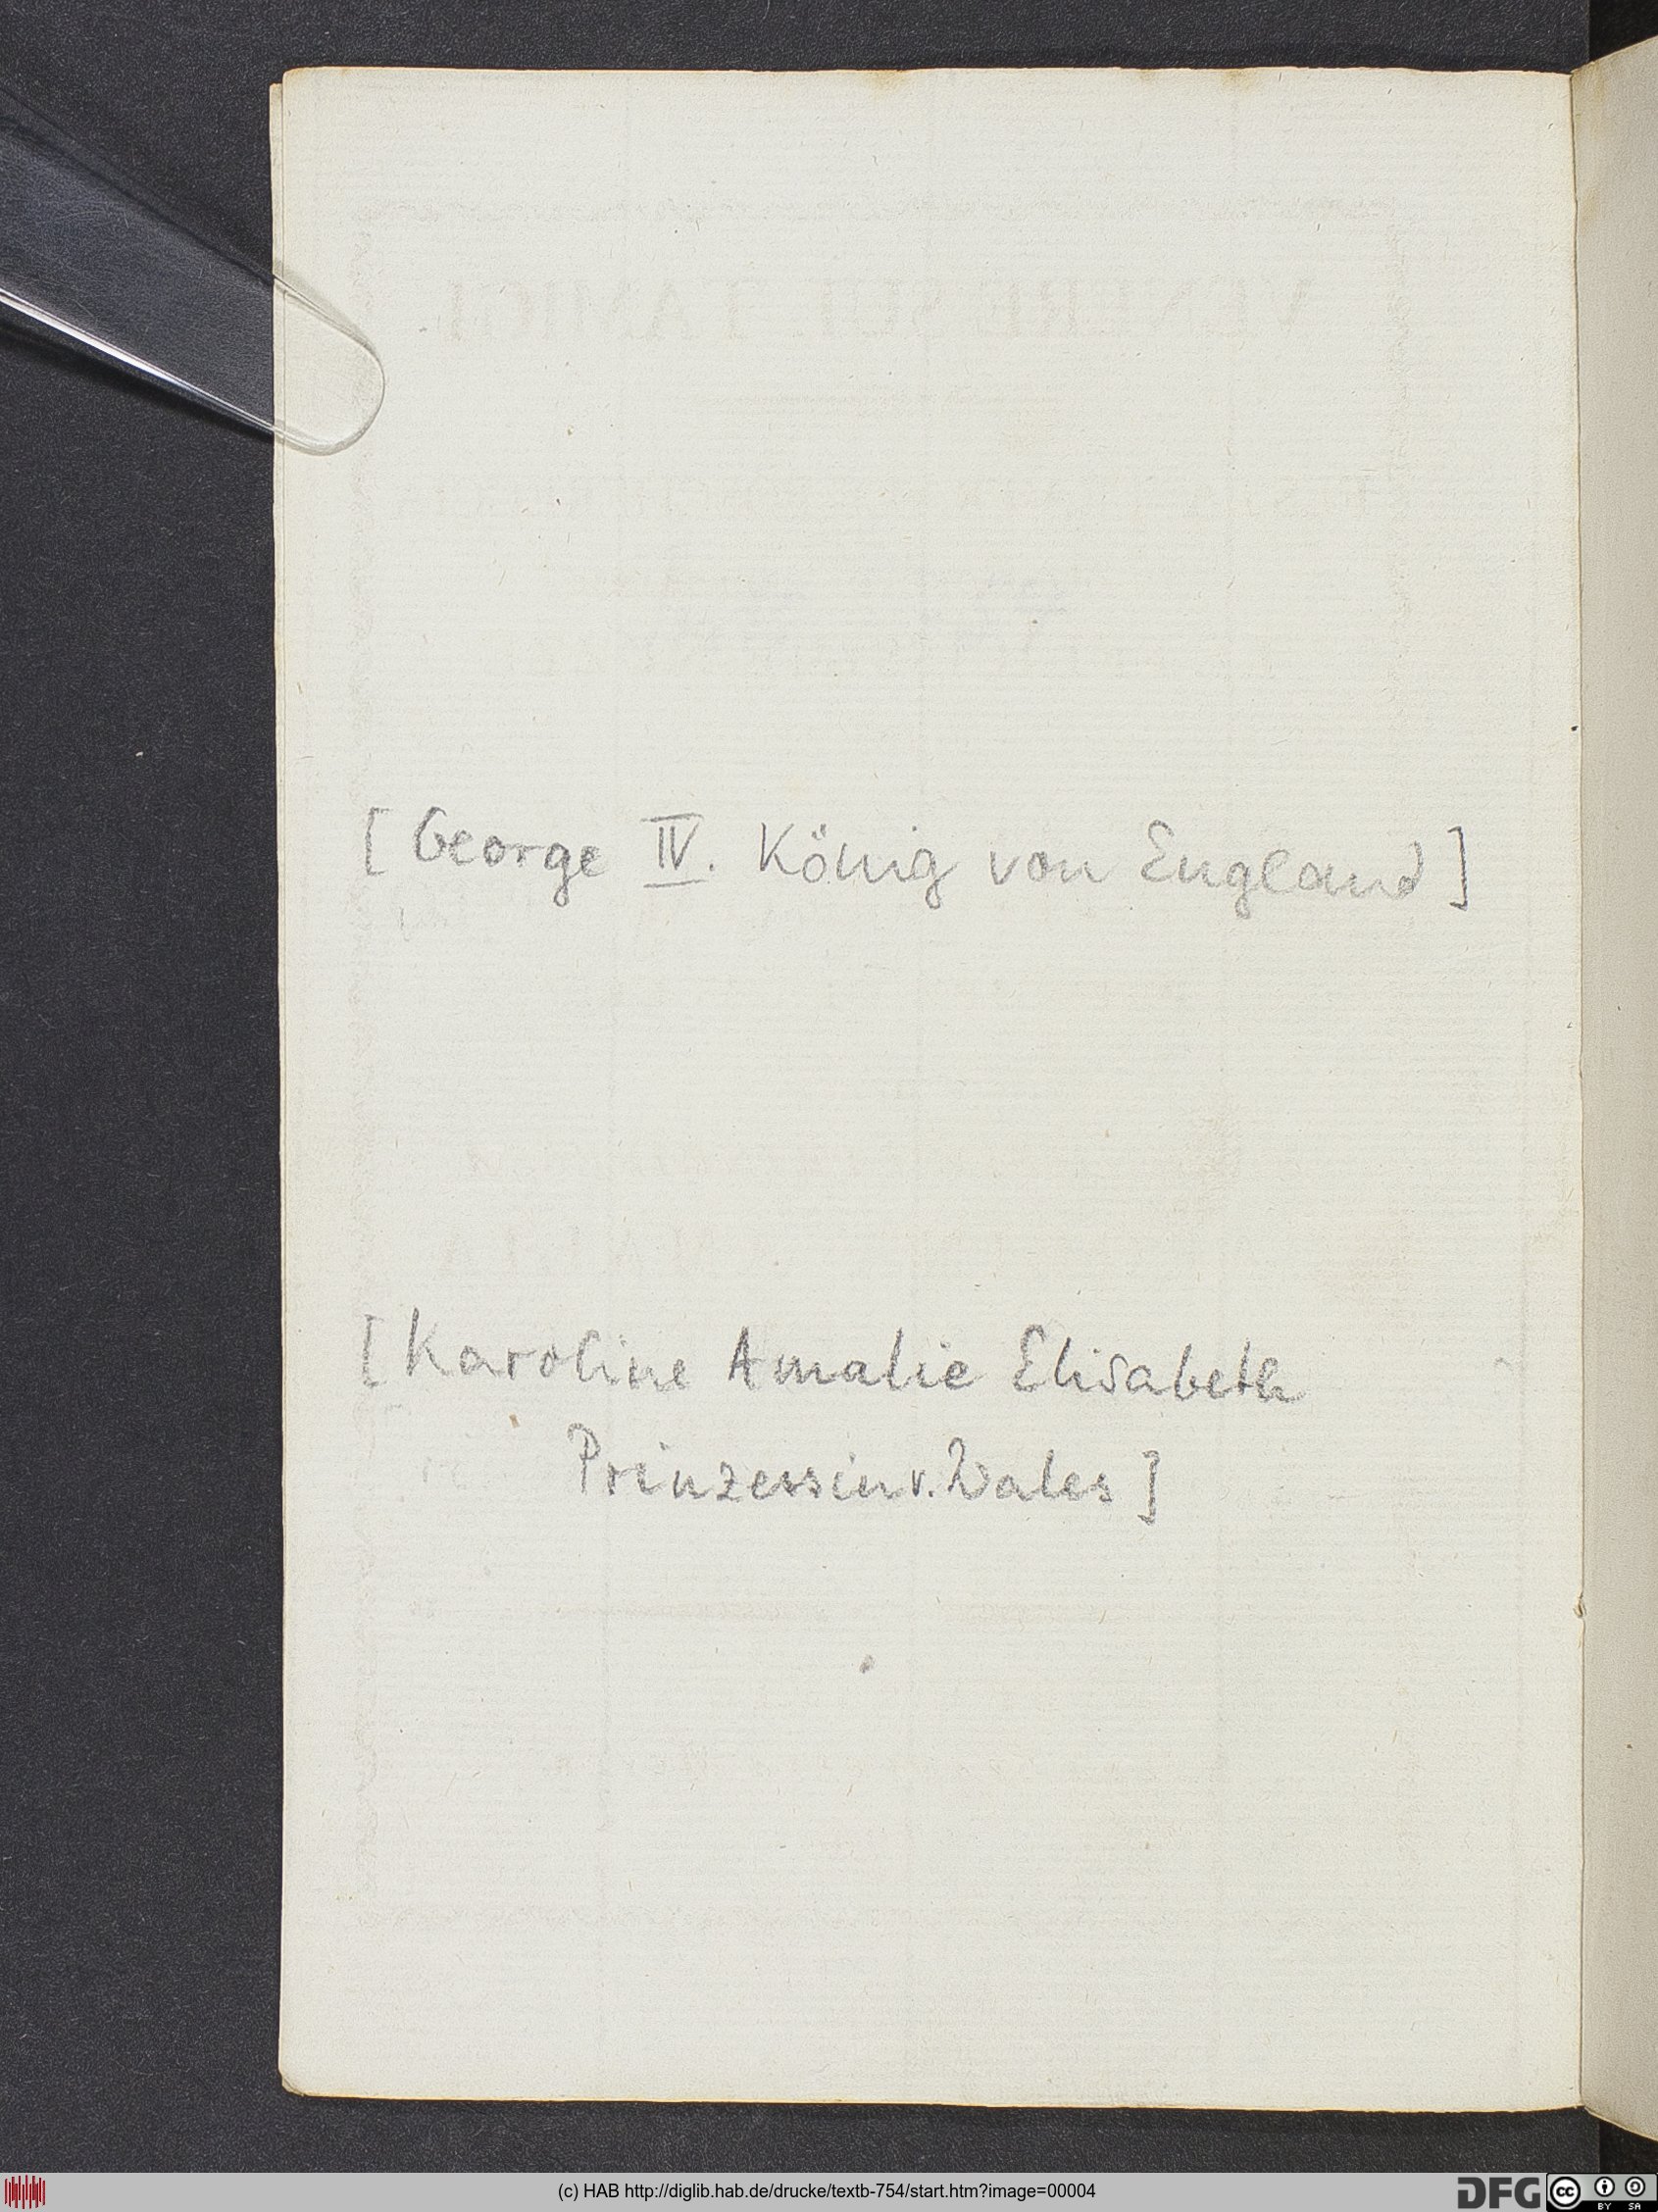 [George IV. König von England]
[Karoline Amalie Elisabeth
Prinzessin v. Wales]
(c) HAB http://diglib.hab.de/drucke/textb-754/start.htm?image=00004
DFG
cc
BY SA